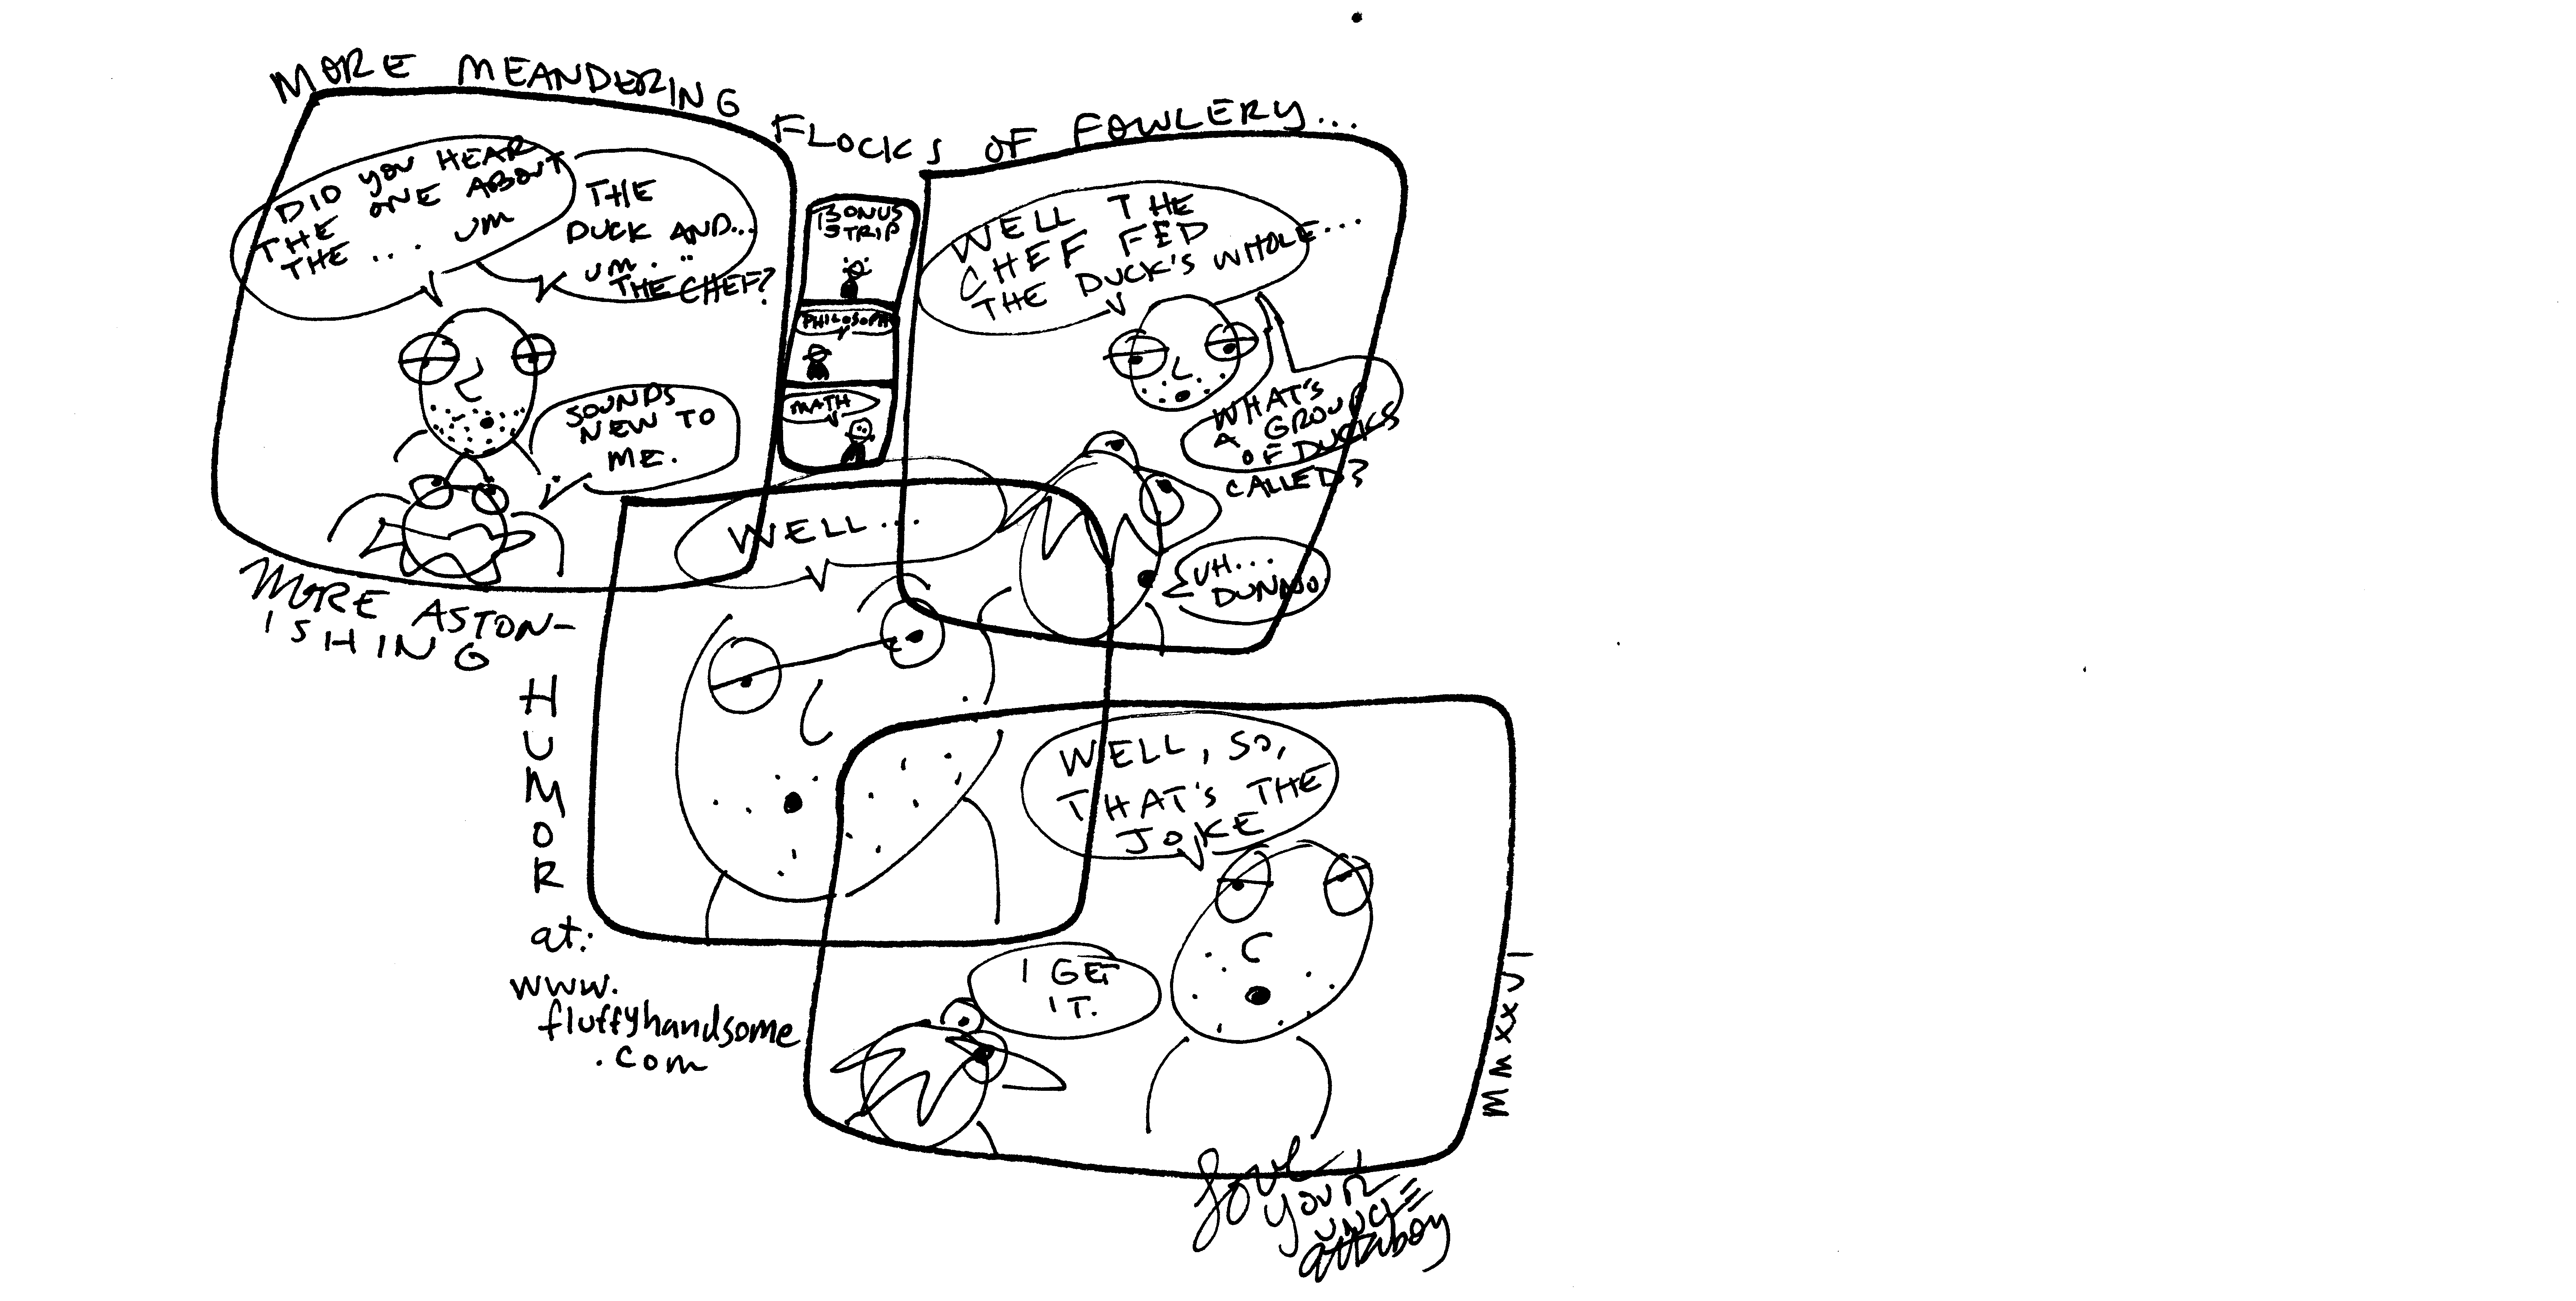 MORE MEANDERING
FLOCKS OF FOWLERY...
DID YOU HEAR
THE ONE ABOUT
THE ... UM
THE
DUCK AND...
UM...
THE CHEF?
SOUNDS
NEW TO
ME.
BONUS
STRIP
PHILOSOPHY
MATH
WELL THE
CHEF FED
THE DUCK'S WHOLE...
WHAT'S
A GROUP
OF DUCKS
CALLED?
UH...
DUNNO
WELL...
WELL, SO,
THAT'S THE
JOKE
I GET
IT.
MORE ASTON-
ISHING
HUMOR
at:
www.
fluffyhandsome
.com
MMXXVI
Love
YOUR
UNCLE
attaboy